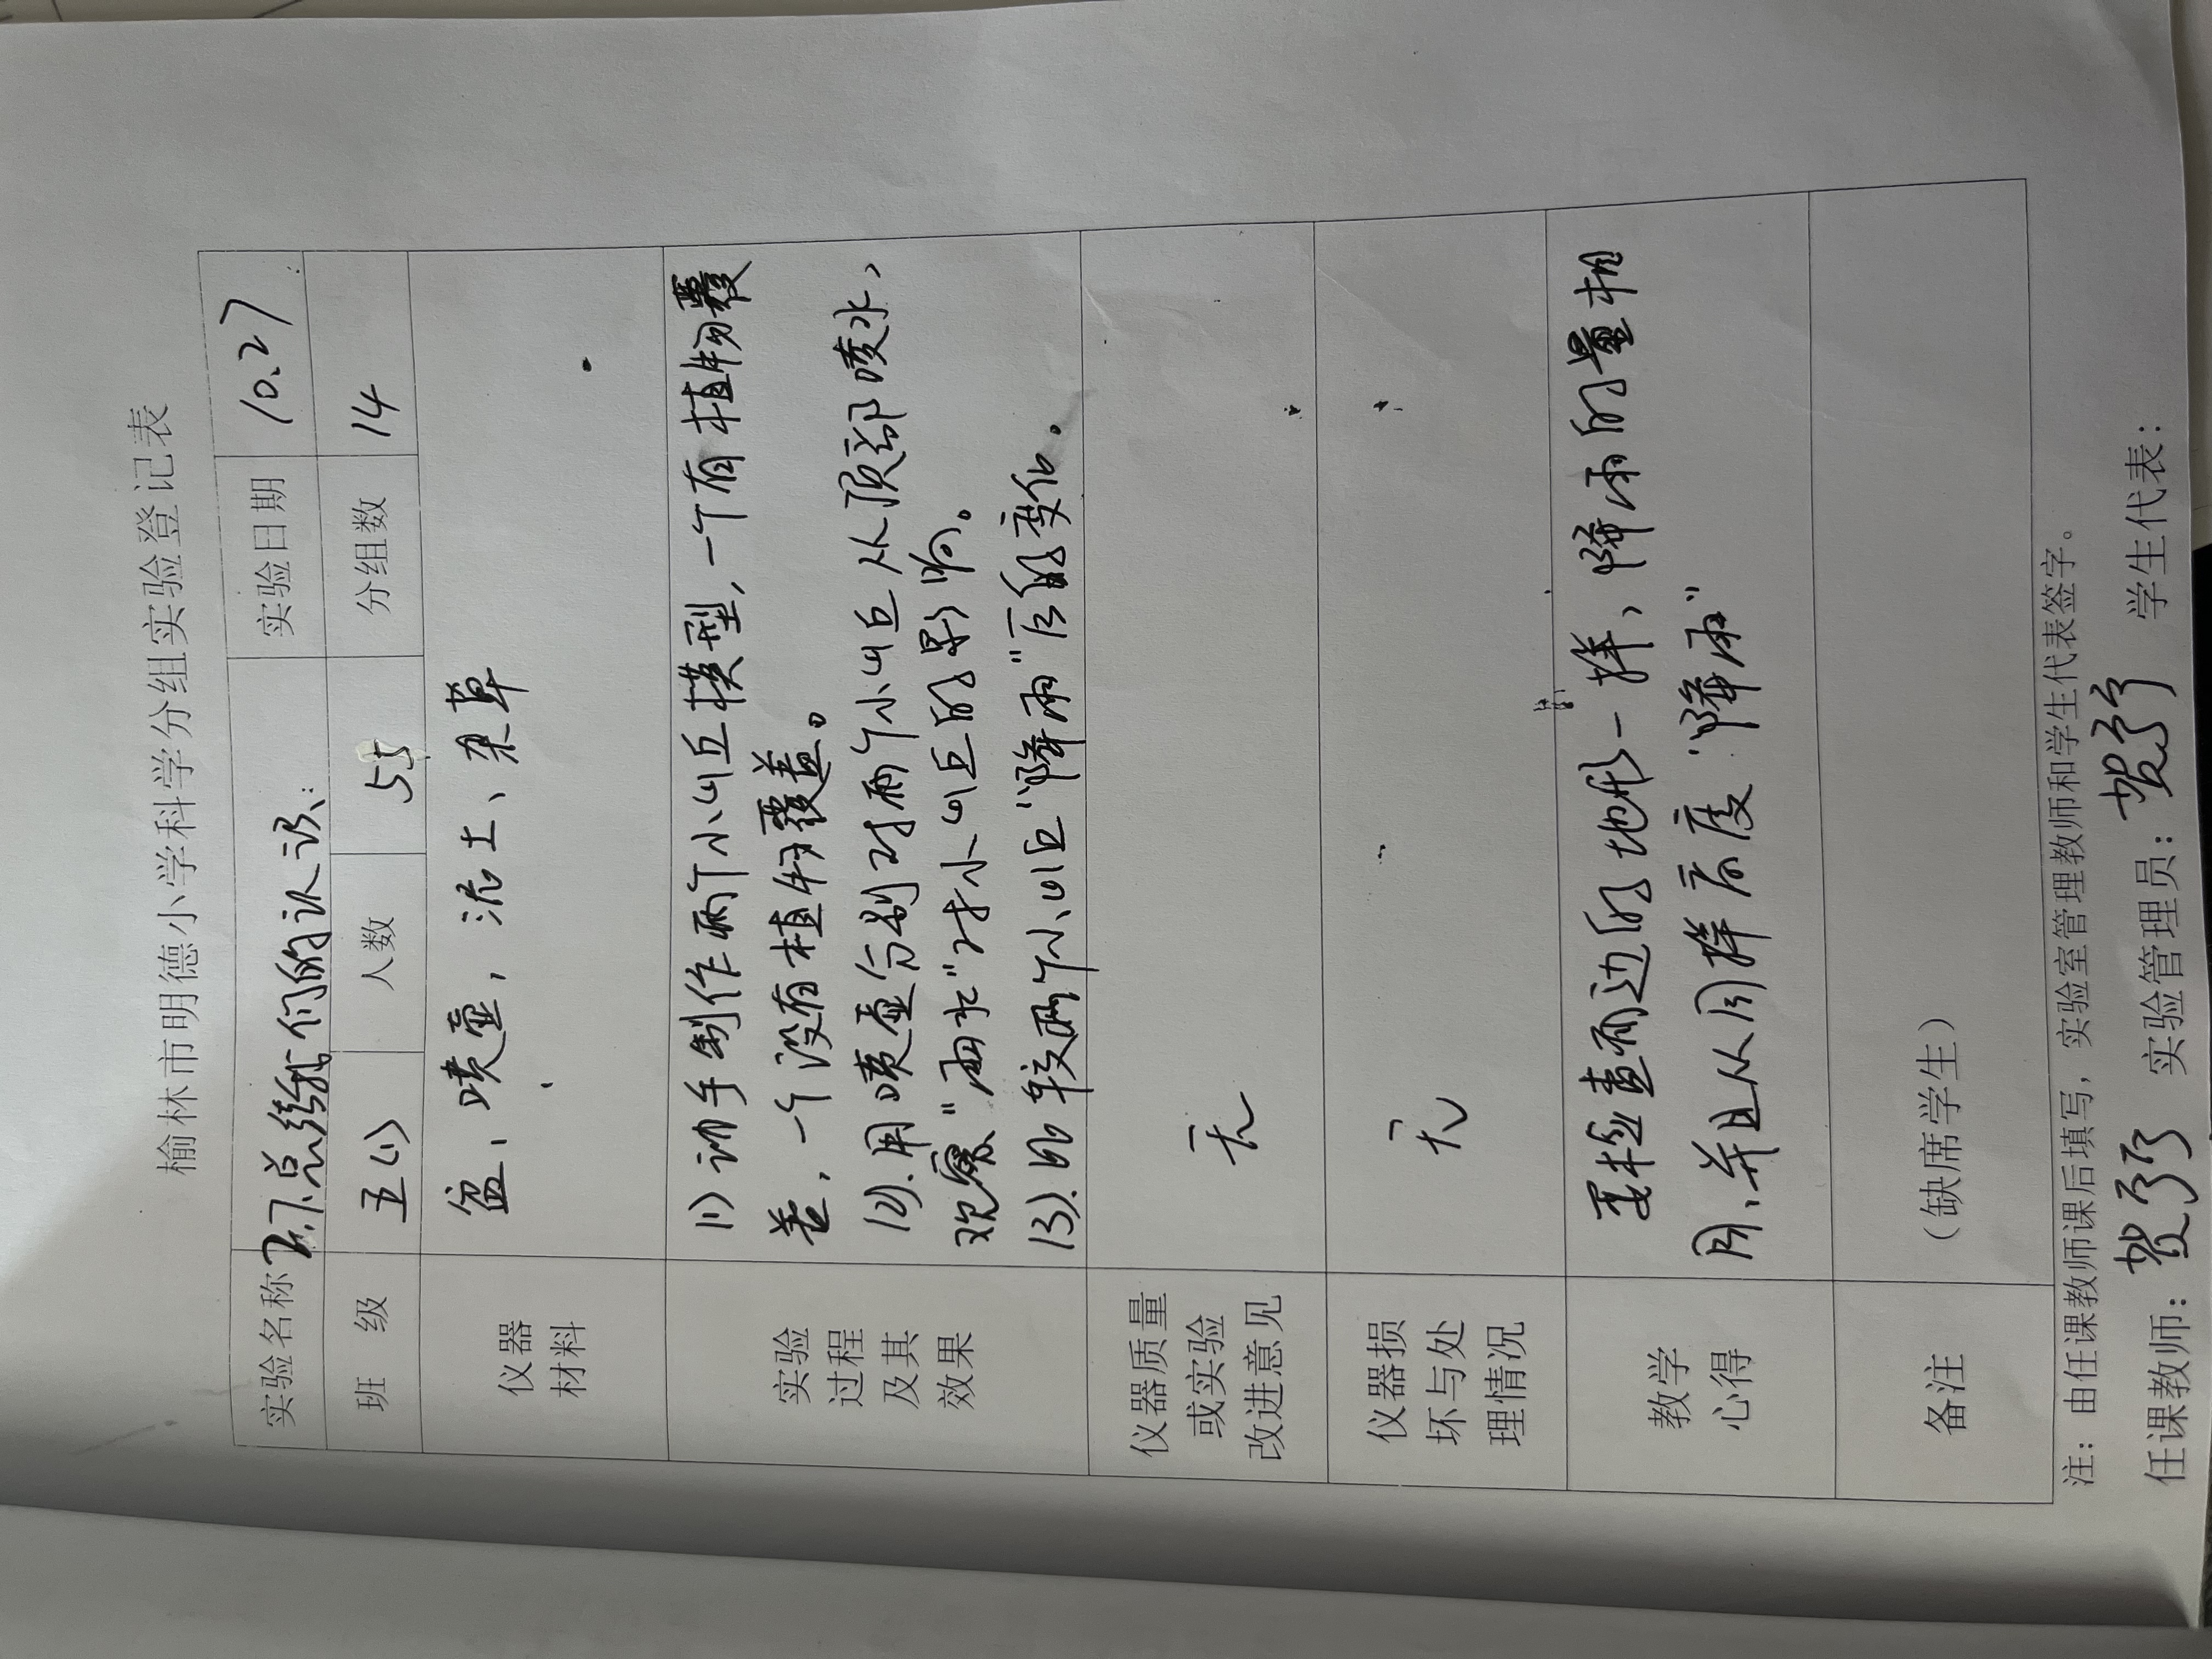 榆林市明德小学科学分组实验登记表
实验名称 2.7.总结我们的认识 实验日期 10.27
班 级 五(1) 人数 55 分组数 14
仪器
材料
盆、喷壶，泥土、杂草
实验
过程
及其
效果
(1)动手制作两个小山丘模型，一个有植物覆
盖，一个没有植物覆盖。
(2).用喷壶分别对两个小山丘从顶部喷水，
观察"雨水"对小山丘的影响。
(3).比较两个小山丘"降雨"后的变化。
仪器质量
或实验
改进意见
无
仪器损
坏与处
理情况
无
教学
心得
要检查两边的地形一样，降雨的量相
同，并且从同样高度"降雨"
备注
（缺席学生）
注：由任课教师课后填写，实验室管理教师和学生代表签字。
任课教师： 实验管理员： 学生代表：